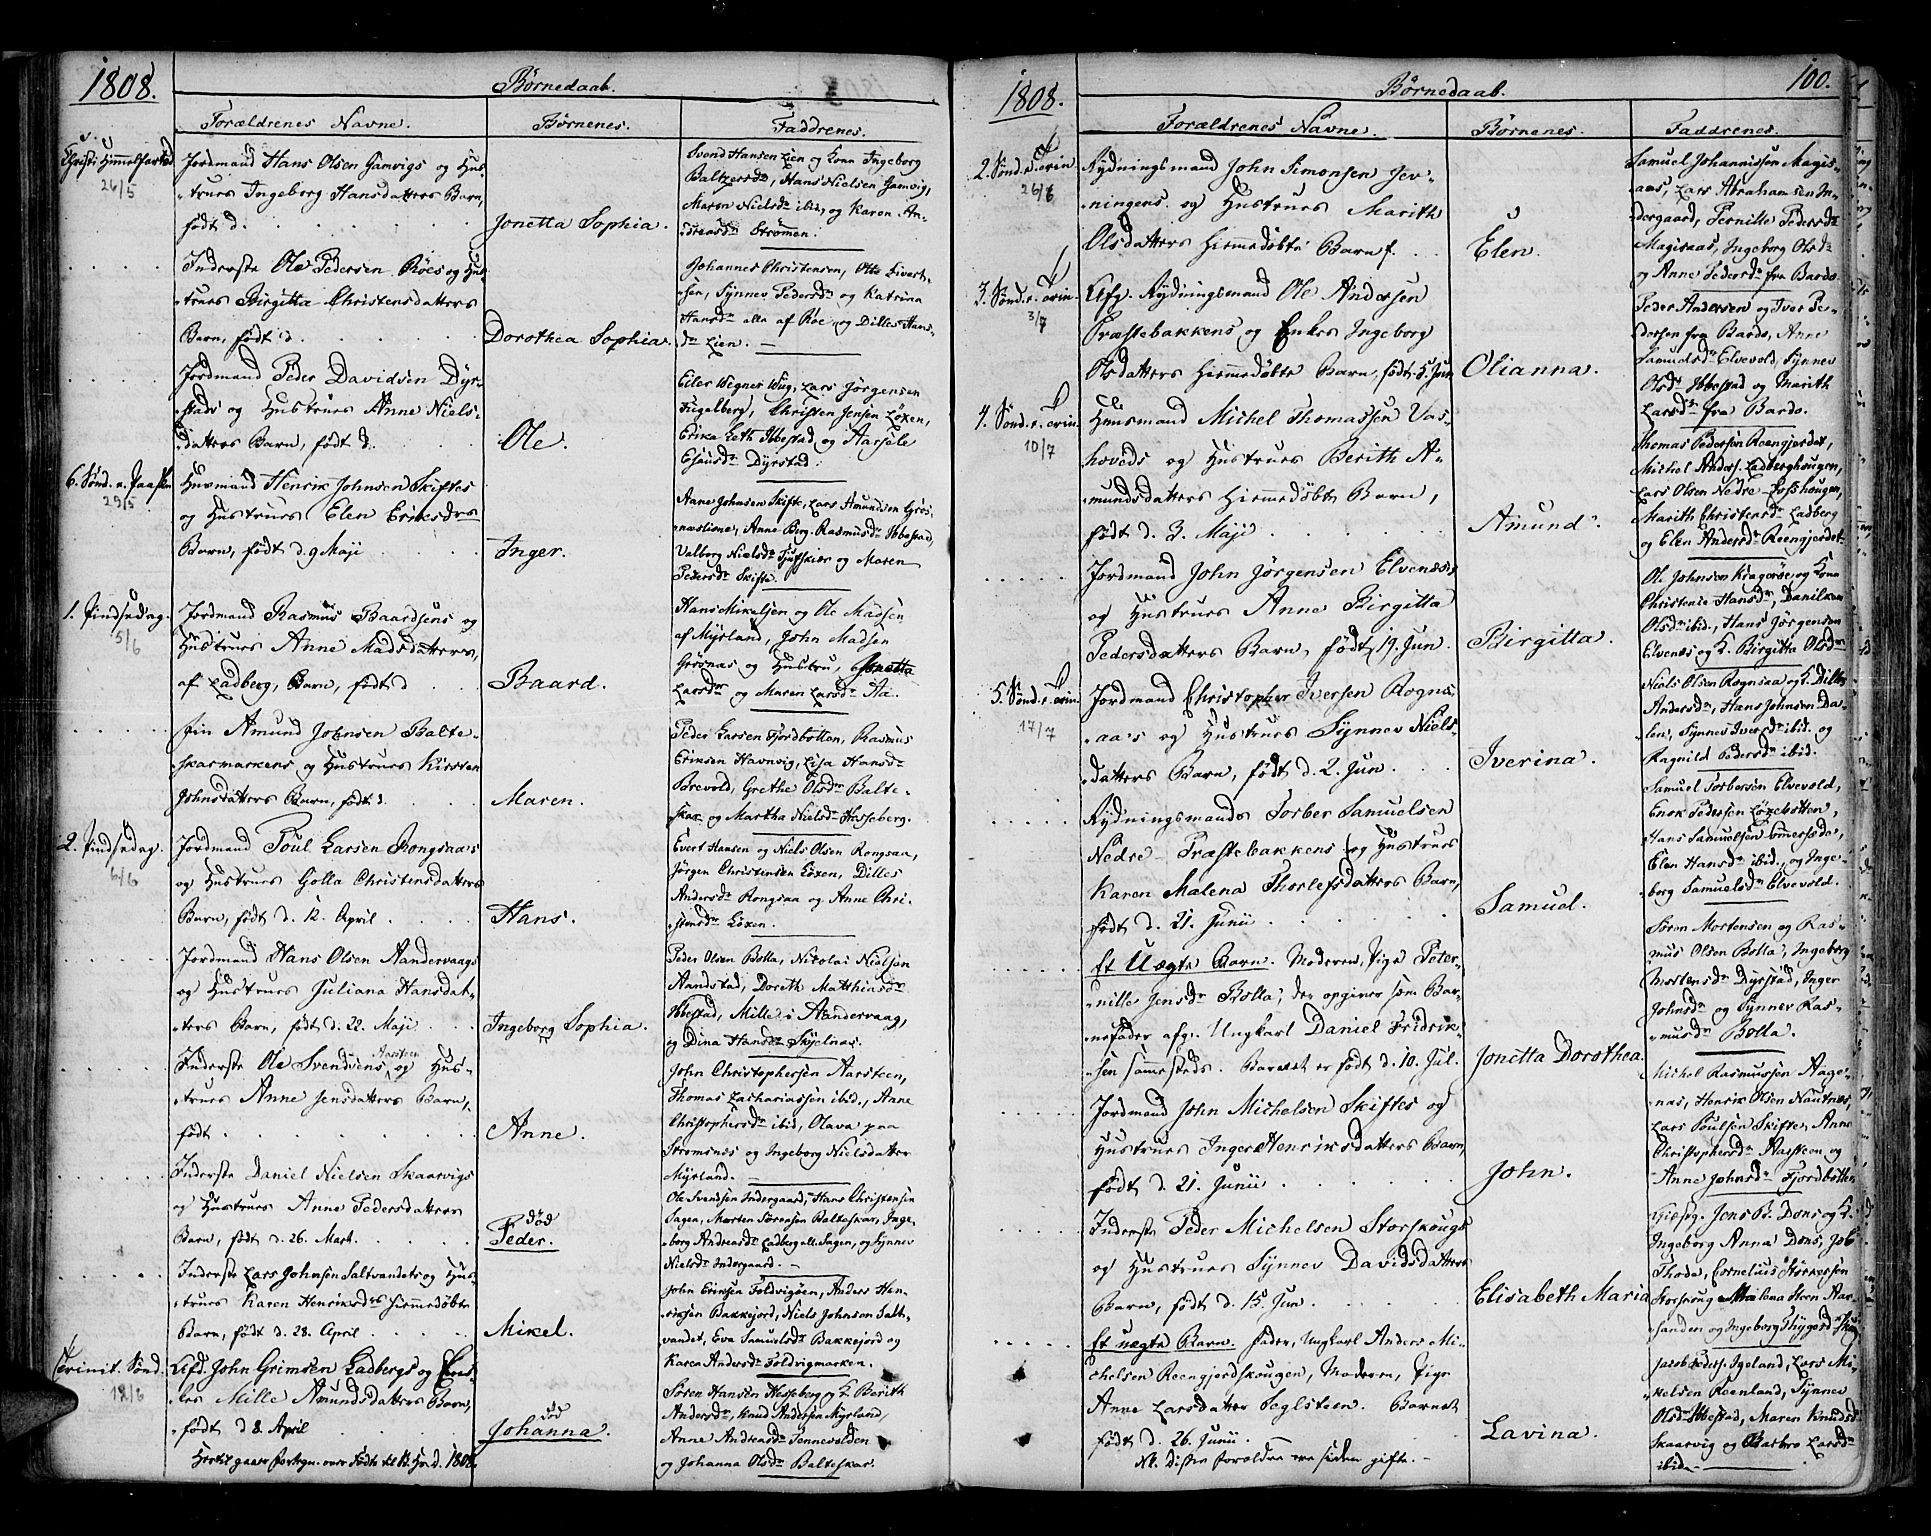 1808.
Børnedaab.
Forældrenes Navne.
Børnenes.
Faddrenes.
Christi Himmelfartsd.
26/5
Jordmand Hans Olsen Gamvigs og Hus-
-trues Ingeborg Hansdatters Barn,
født d.
Jonetta Sophia.
Svend Hansen Lien og Kona Ingeborg
Baltzersdr, Hans Nielsen Gamvig,
Maren Nielsdr ibid, og Karen An-
-dreasdr Strømen.
Inderste Ole Pedersen Røes og Hus-
-trues Birgitta Christensdatters
Barn, født d.
Dorothea Sophia.
Johannes Christensen, Ole Sivert-
sen, Synnev Pedersdr og Katrina
Hansdr alle af Røe, og Dilles Hans-
dr Lien.
Jordmand Peder Davidsen Dyr-
-stads og Hustrues Anne Niels-
-datters Barn, født d.
Ole.
Eiler Wegner Wug, Lars Jørgensen
Fugelberg, Christen Jensen Løxen,
Erika Leth Ibbestad, og Aarsele
Esaiasdr Dyrstad.
6. Sønd. e. Paasken
29/5
Huusmand Henrik Johnsen Skiftes
og Hustrues Elen Eriksdrs
Barn, født d. 9 Maji
Inger.
Aane Johnsen Skifte, Lars Amundsen Grøs-
-næslione, Anne Berg. Rasmusdr Ibbestad,
Valborg Nielsdr Tjufskiær og Maren
Pedersdr Skifte.
1. Pindsedag.
5/6
Jordmand Rasmus Baardsens og
Hustrues Anne Madsdatters,
af Ladberg, Barn, født d
Baard.
Hans Mikelsen og Ole Madsen
af Myrland, John Madsen
Grøsnas og Hustru, Jonetta
Larsdr og Maren Larsdr Aa.
Fin Amund Johnsen Balte-
-skarmarkens og Hustrues Kirsten
Johnsdatters Barn, født d.
Maren.
Peder Larsen Fjordbotten, Rasmus
Eriksen Havnvig, Lisa Hansdr
Brevold, Grethe Olsdr Balte-
skar og Martha Nielsdr Hasseberg.
2. Pindsedag.
6/6
Jordmand Poul Larsen Rongsaa's
og Hustrues Golla Christensdatters
Barn, født d. 12. April
Hans.
Evert Hansen og Niels Olsen Rongsaa,
Jørgen Christensen Løxen, Dilles
Andersdr Rongsaa og Anne Chri-
stensdr Løxen.
Jordmand Hans Olsen Aandervaags
og Hustrues Juliana Hansdat-
-ters Barn, født d. 22. Maji
Ingeborg Sophia.
Peder Olsen Bolla, Nicolai Nielsen
Aandstad, Doreth Matthiasdr
Ibbestad, Mille i Aandervaag,
og Dina Hansdr Skjelnas.
Inderste Ole Svendsens Aarsteen og Hus-
-trues Anne Jensdatters Barn,
født
Anne.
John Christophersen Aarsteen,
Thomas Zachariassen ibid., Anne
Christophersdr ibid, Olava paa
Strømsnes og Ingeborg Nielsdatter
Myrland.
Inderste Daniel Nielsen Skaarvigs
og Hustrues Anne Pedersdatters
Barn, født d. 26. Mart.
død
Peder.
Ole Svendsen Indergaard, Hans Christensen
Sagen, Morten Sørensen Balteskar, Inge-
-borg Andreasdr Ladberg ell. Sagen, og Synnev
Nielsdr Indergaard.
Inderste Lars Johnsen Saltvandets og Hus-
-trues Karen Henriksdrs hiemmedøbte
Barn, født d. 28. April
Mikel.
John Eriksen Foldvigøen, Anders Hen-
-riksen Bakkejord, Niels Johnsen Salt-
vandet, Eva Samuelsdr Bakkejord og
Karen Andersdr Foldvigmarken.
Trinit. Sønd.
12/6
Afd. John Grimsen Ladbergs og Enk-
-es Mille Amundsdatters Barn,
-født d 8. April
død
Johanna.
Søren Hansen Hesseberg og K. Berith
Andersdr, Knud Andersen Myrland,
Anne Andreasdr Tennevolden
og Johanna Olsdr Balteskar.
Hertil gaaer fortegn. over Fødte til H. Hvd. 1808.
1808.
Børnedaab.
100.
Forældrenes Navne.
Børnenes.
Faddrenes.
2. Sønd. e. Trin.
26/6
Rydningsmand John Simonsen Jev-
-ningens og Hustrues Marith
Olsdatters hiemmedøbte Barn f.
Elen.
Samuel Johannissen Magis-
aas, Lars Abrahamsen In-
dergaard, Pernille Pedersdr
Magisaas, Ingeborg Olsdr
og Anne Pedersdr fra Bardo.
3. Sønd. e. Trin.
3/7
Afg. Rydningsmand Ole Andersen
Præstebakkens og Enkes Ingeborg
Olsdatters hiemmedøbte Barn, født 5. Jun
Olianna.
Peder Andersen og Iver Pe-
dersen fra Bardo, Anne
Samuelsdr Elvevold, Synnev
Olsdr Ibbestad og Marith
Larsdr fra Bardo.
4. Sønd. e. Trin.
10/7
Huusmand Michel Thomassen Vas-
-hoveds og Hustrues Berith A-
-mundsdatters hiemmedøbte Barn,
født d. 3. Maji
Amund.
Thomas Pedersen Reengjerdet,
Michel Anders. Ladberghougen,
Lars Olsen Nedre-Fosshougen,
Marith Christensdr Ladberg
og Elen Andersdr Reengjerdet.
Jordmand John Jørgensen Elvenæs
og Hustrues Anne Birgitta
Pedersdatters Barn, født 19. Jun.
Birgitta.
Ole Johnsen Kragerøe og Kona
Christenie Hansdr, Danilken
Olsdr ibid., Hans Jørgensen
Elvenæs og K. Birgitta Olsdr
5. Sønd. e. Trin.
17/7
Jordmand Christopher Iversen Rogns-
-aa's og Hustrues Synnev Niels-
-datters Barn, født d. 2. Jun.
Iverina.
Niels Olsen Rognsaa og K. Dilles
Andersdr, Hans Johnsen Da-
len, Synnev Iversdr ibid. og
Ragnild Pedersdr ibid.
Rydningsmands Torber Samuelsen
Nedre-Præstebakkens og Hustrues
Karen Malena Thorlefsdatters Barn,
født d. 21. Junii
Samuel.
Samuel Torbersen Elvevold,
Enok Pedersen Løxebotten,
Hans Samuelsen Sommersæde,
Elen Hansdr ibid., og Inge-
borg Samuelsdr Elvevold.
Et Uægte Barn. Moderen, Pige Peter-
-nille Jensdr Bolla, der opgiver som Bar-
-nefader afg. Ungkarl Daniel Fridrik-
-sen sammesteds. Barnet er født d. 10. Jul.
Jonetta Dorothea.
Søren Mortensen og Ras-
mus Olsen Bolla, Ingeborg
Mortensdr Dyrstad, Inger
Johnsdr og Synnev Ras-
-musdr Bolla.
Jordmand John Michelsen Skiftes og
Hustrues Inger Henriksdatters Barn,
født d. 21. Junii
John.
Michel Rasmussen Aage-
nas, Henrik Olsen Nautnæs,
Lars Poulsen Skifte, Anne
Christophersdr Aarsteen og
Anne Johnsdr Fjordbotten
Inderste Peder Michelsen Storskougs
og Hustrues Synnev Davidsdatters
Barn, født d. 15. Jun.
Elisabeth Maria
Giestg. Jens Pr. Dons og K.
Ingeborg Anna Dons, Job
Thode, Cornelius Størkersen
Storskoug, Malena Steen Aar-
-sanden og Ingeborg Thygesdr Skoug
Et uægte Barn. Fader, Ungkarl Anders Mi-
chelsen Reengjerdskougen, Moderen, Pige
Anne Larsdatter Seglsteen. Barnet
født d. 26. Junii
Nb. disse forældre ere siden gifte.
Lavina.
Jacob Peders. Igeland, Lars Mi-
-kelsen Reenland, Synnev
Olsdr Ibbestad, Maren Knudsdr
Skaarvig og Barbro Larsdr
ibid.